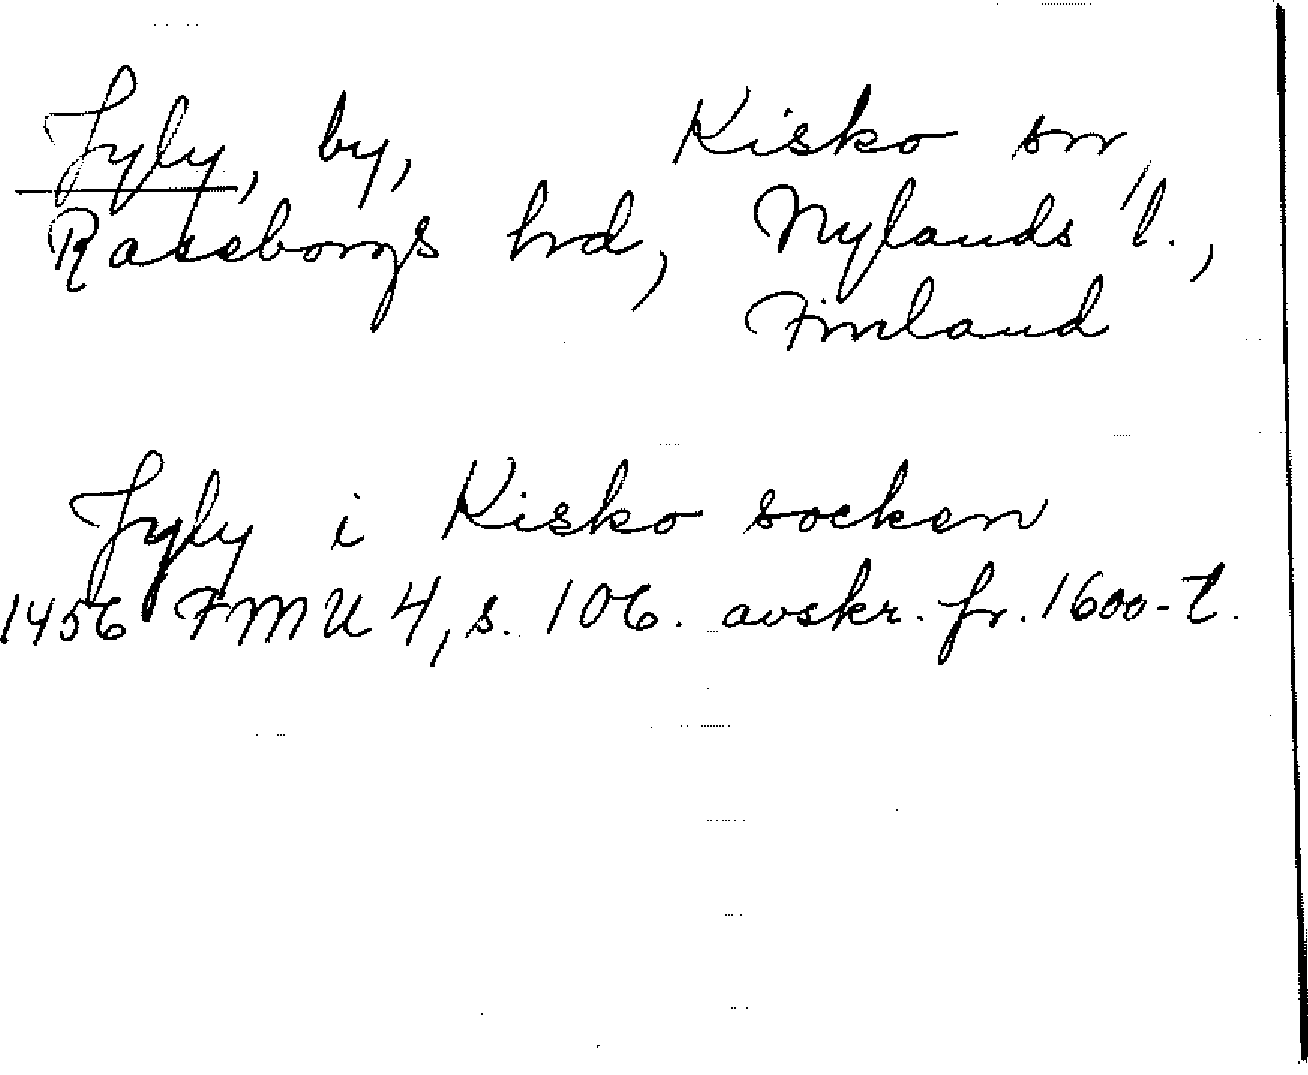 Jyly, by, Kisko sn,
Raseborgs hrd, Nylands l.,
Finland
Jyly i Kisko socken
1456 FMU 4, s. 106. avskr. fr. 1600-t.